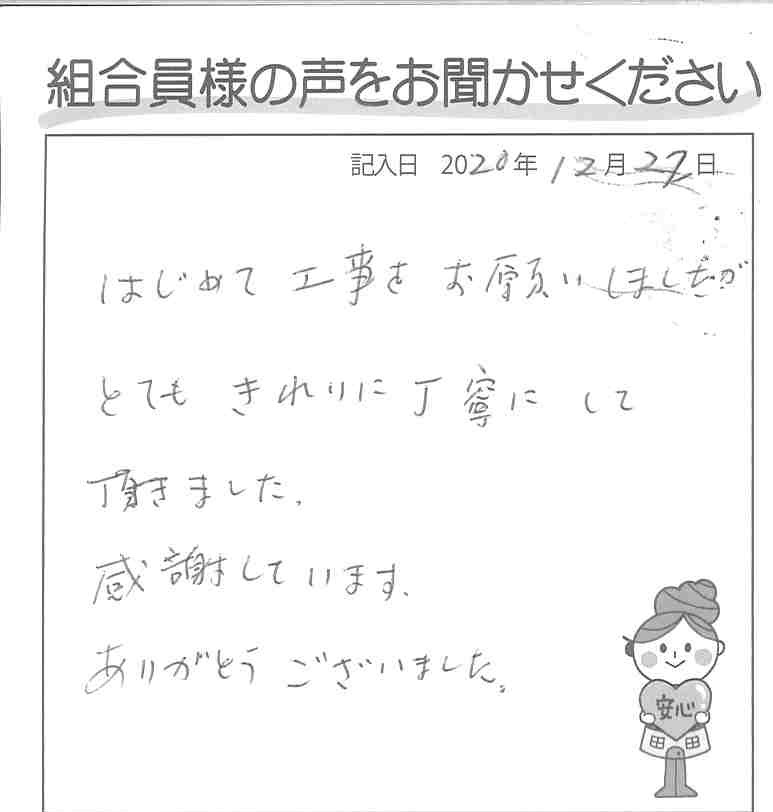 組合員様の声をお聞かせください
記入日 2020年 12月 27日
はじめて 工事を お願いしましたが
とても きれいに 丁寧に して
頂きました。
感謝しています。
ありがとう ございました。
安心